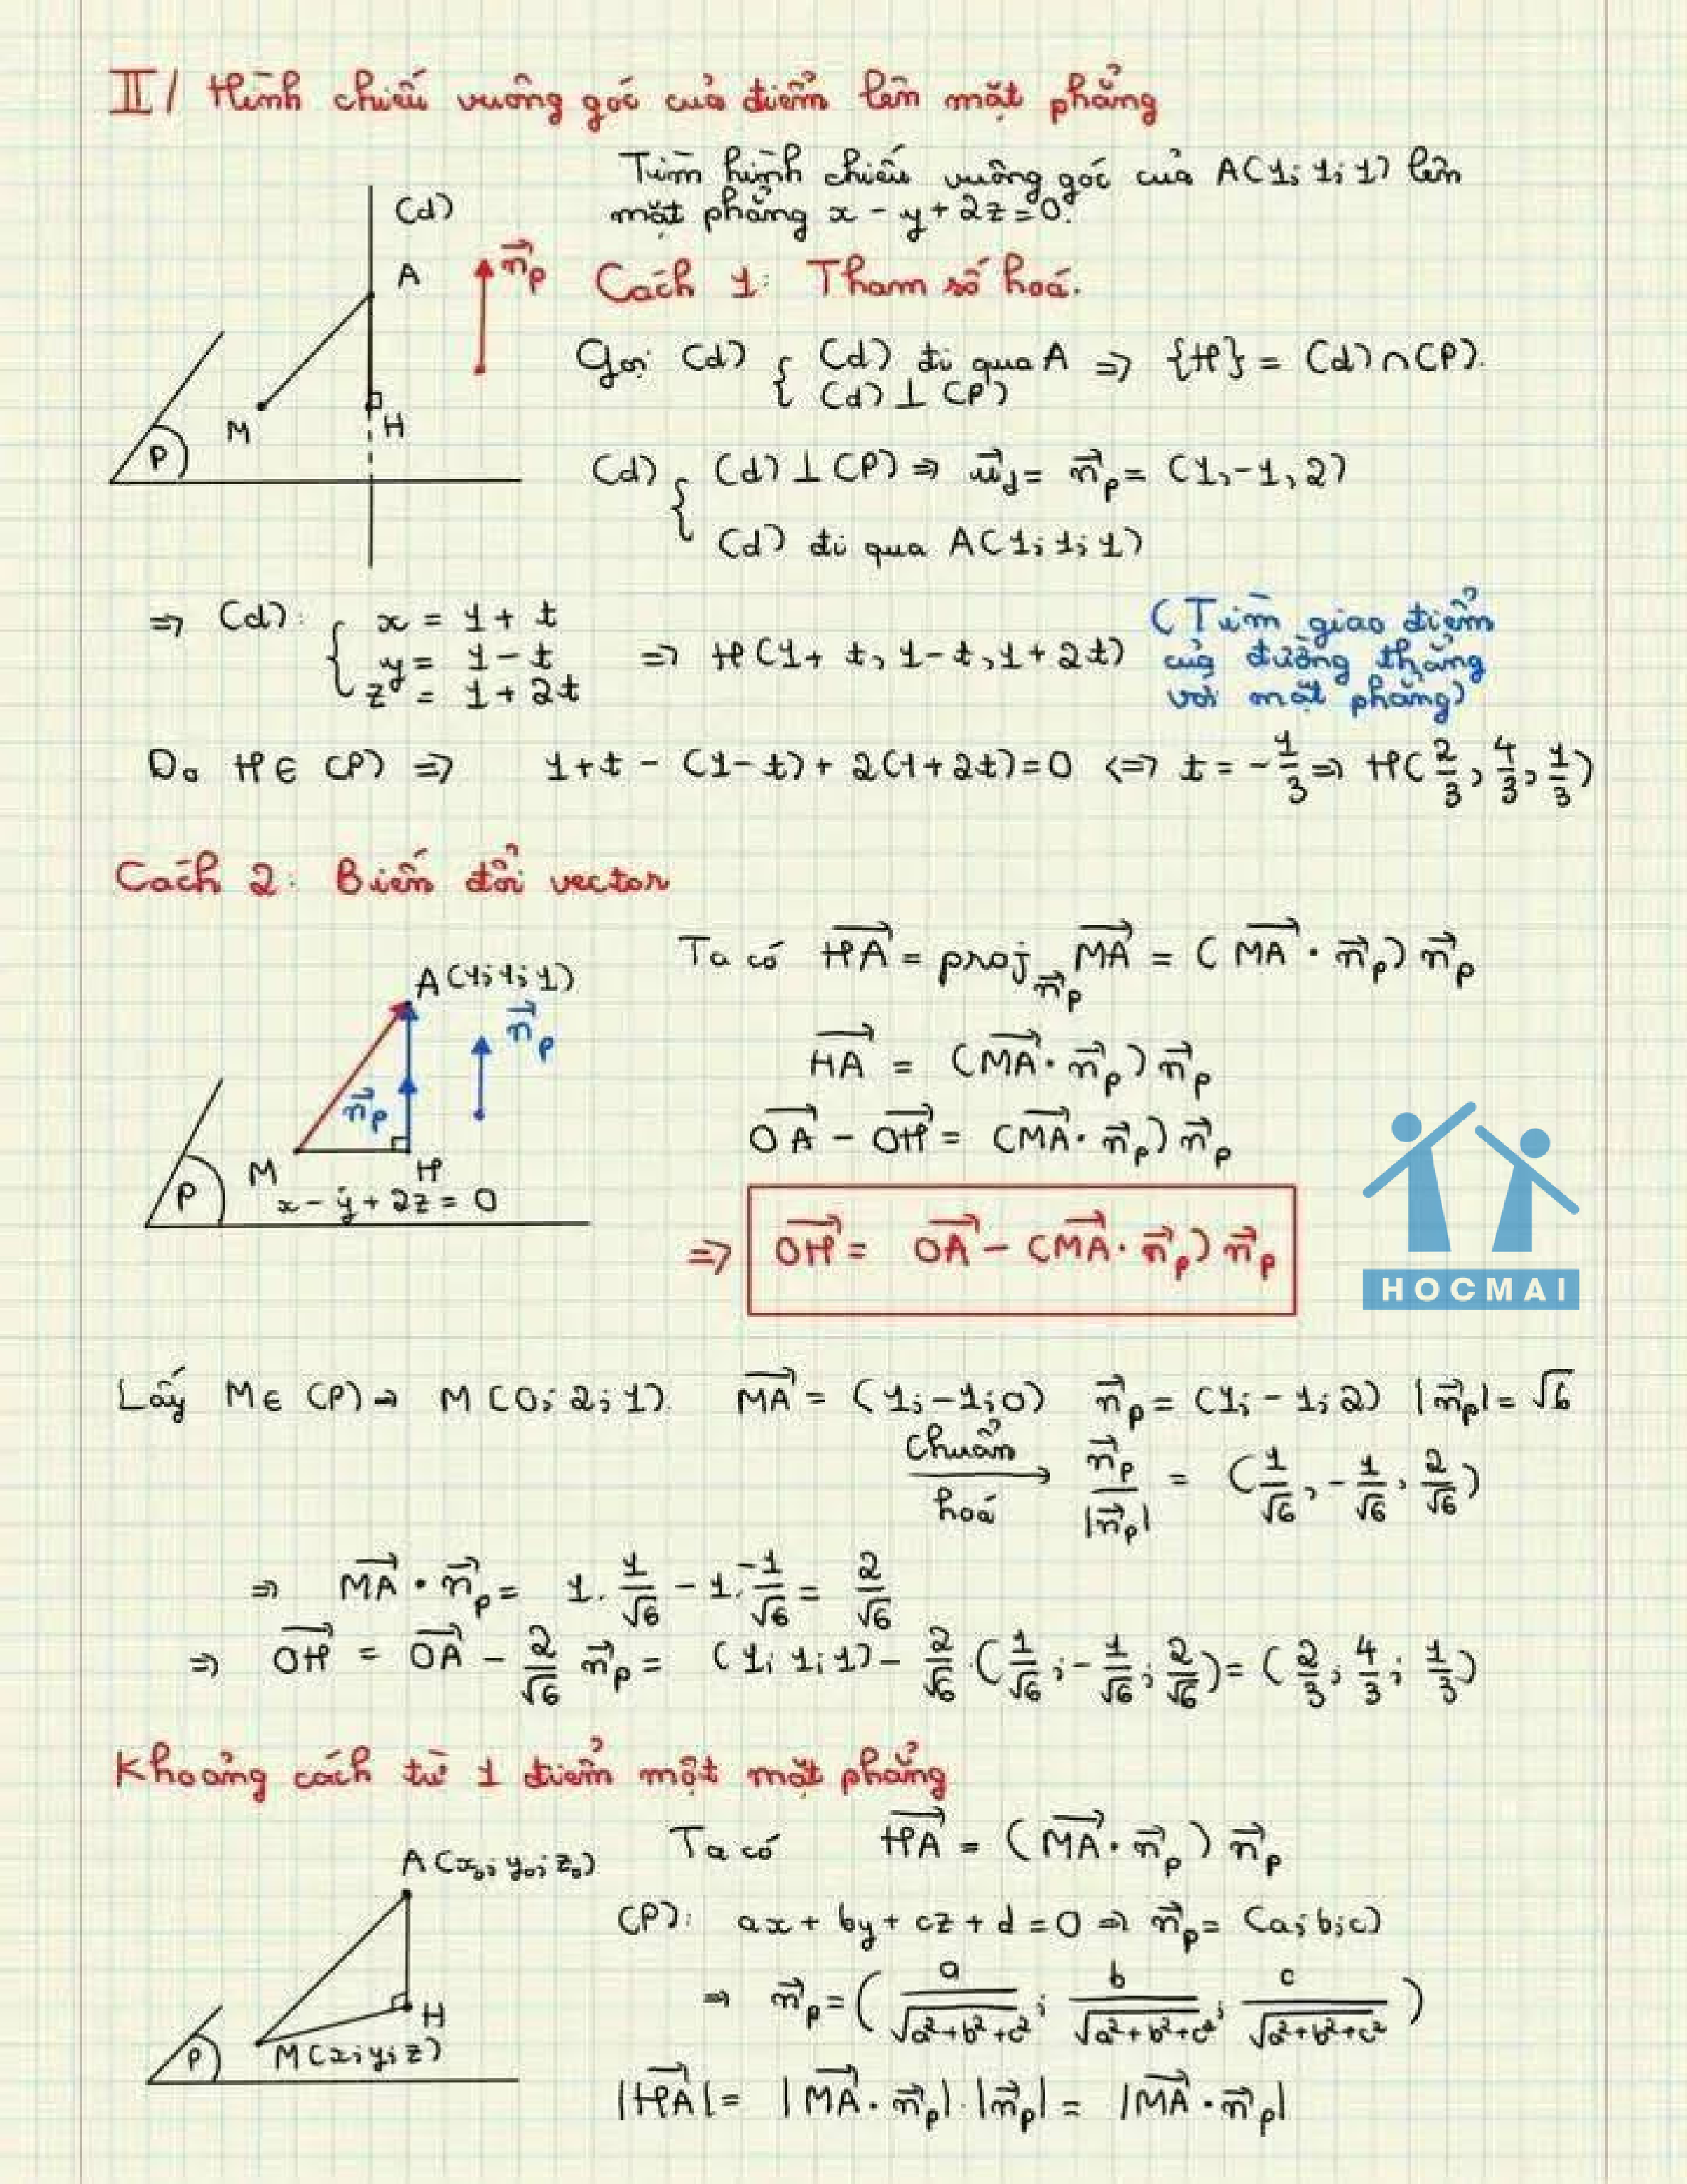 II/ Hình chiếu vuông góc của điểm lên mặt phẳng
Tìm hình chiếu vuông góc của A(1; 1; 1) lên
mặt phẳng x - y + 2z = 0.
(d)
A
n⃗p
M
H
P
Cách 1: Tham số hoá.
Gọi (d) { (d) đi qua A => {H} = (d) ∩ (P).
(d) ⊥ (P)
(d) { (d) ⊥ (P) => u⃗d = n⃗p = (1, -1, 2)
(d) đi qua A(1; 1; 1)
=> (d): { x = 1 + t
y = 1 - t => H(1 + t, 1 - t, 1 + 2t)
z = 1 + 2t
(Tìm giao điểm
của đường thẳng
với mặt phẳng)
Do H ∈ (P) => 1 + t - (1 - t) + 2(1 + 2t) = 0 <=> t = -1/3 => H(2/3, 4/3, 1/3)
Cách 2: Biến đổi vector
A(1; 1; 1)
n⃗p
n⃗p
M
H
x - y + 2z = 0
P
Ta có HA⃗ = proj n⃗p MA⃗ = (MA⃗ · n⃗p) n⃗p
HA⃗ = (MA⃗ · n⃗p) n⃗p
OA⃗ - OH⃗ = (MA⃗ · n⃗p) n⃗p
=> OH⃗ = OA⃗ - (MA⃗ · n⃗p) n⃗p
HOCMAI
Lấy M ∈ (P) → M(0; 2; 1) MA⃗ = (1; -1; 0) n⃗p = (1; -1; 2) |n⃗p| = √6
chuẩn hoá → n⃗p/|n⃗p| = (1/√6, -1/√6, 2/√6)
=> MA⃗ · n⃗p = 1 . 1/√6 - 1 . -1/√6 = 2/√6
=> OH⃗ = OA⃗ - 2/√6 n⃗p = (1; 1; 1) - 2/√6 . (1/√6; -1/√6; 2/√6) = (2/3; 4/3; 1/3)
Khoảng cách từ 1 điểm một mặt phẳng
A(x₀; y₀; z₀)
H
M(x; y; z)
P
Ta có HA⃗ = (MA⃗ · n⃗p) n⃗p
(P): ax + by + cz + d = 0 => n⃗p = (a; b; c)
=> n⃗p = (a/√(a²+b²+c²); b/√(a²+b²+c²); c/√(a²+b²+c²))
|HA⃗| = |MA⃗ · n⃗p| . |n⃗p| = |MA⃗ · n⃗p|